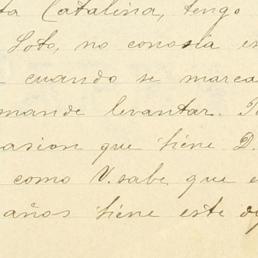 ta Catalina, tengo
Soto, no conosia en
cuando se marca
mande levantar.
asion que tiene D.
como V. sabe, que e
años tiene este